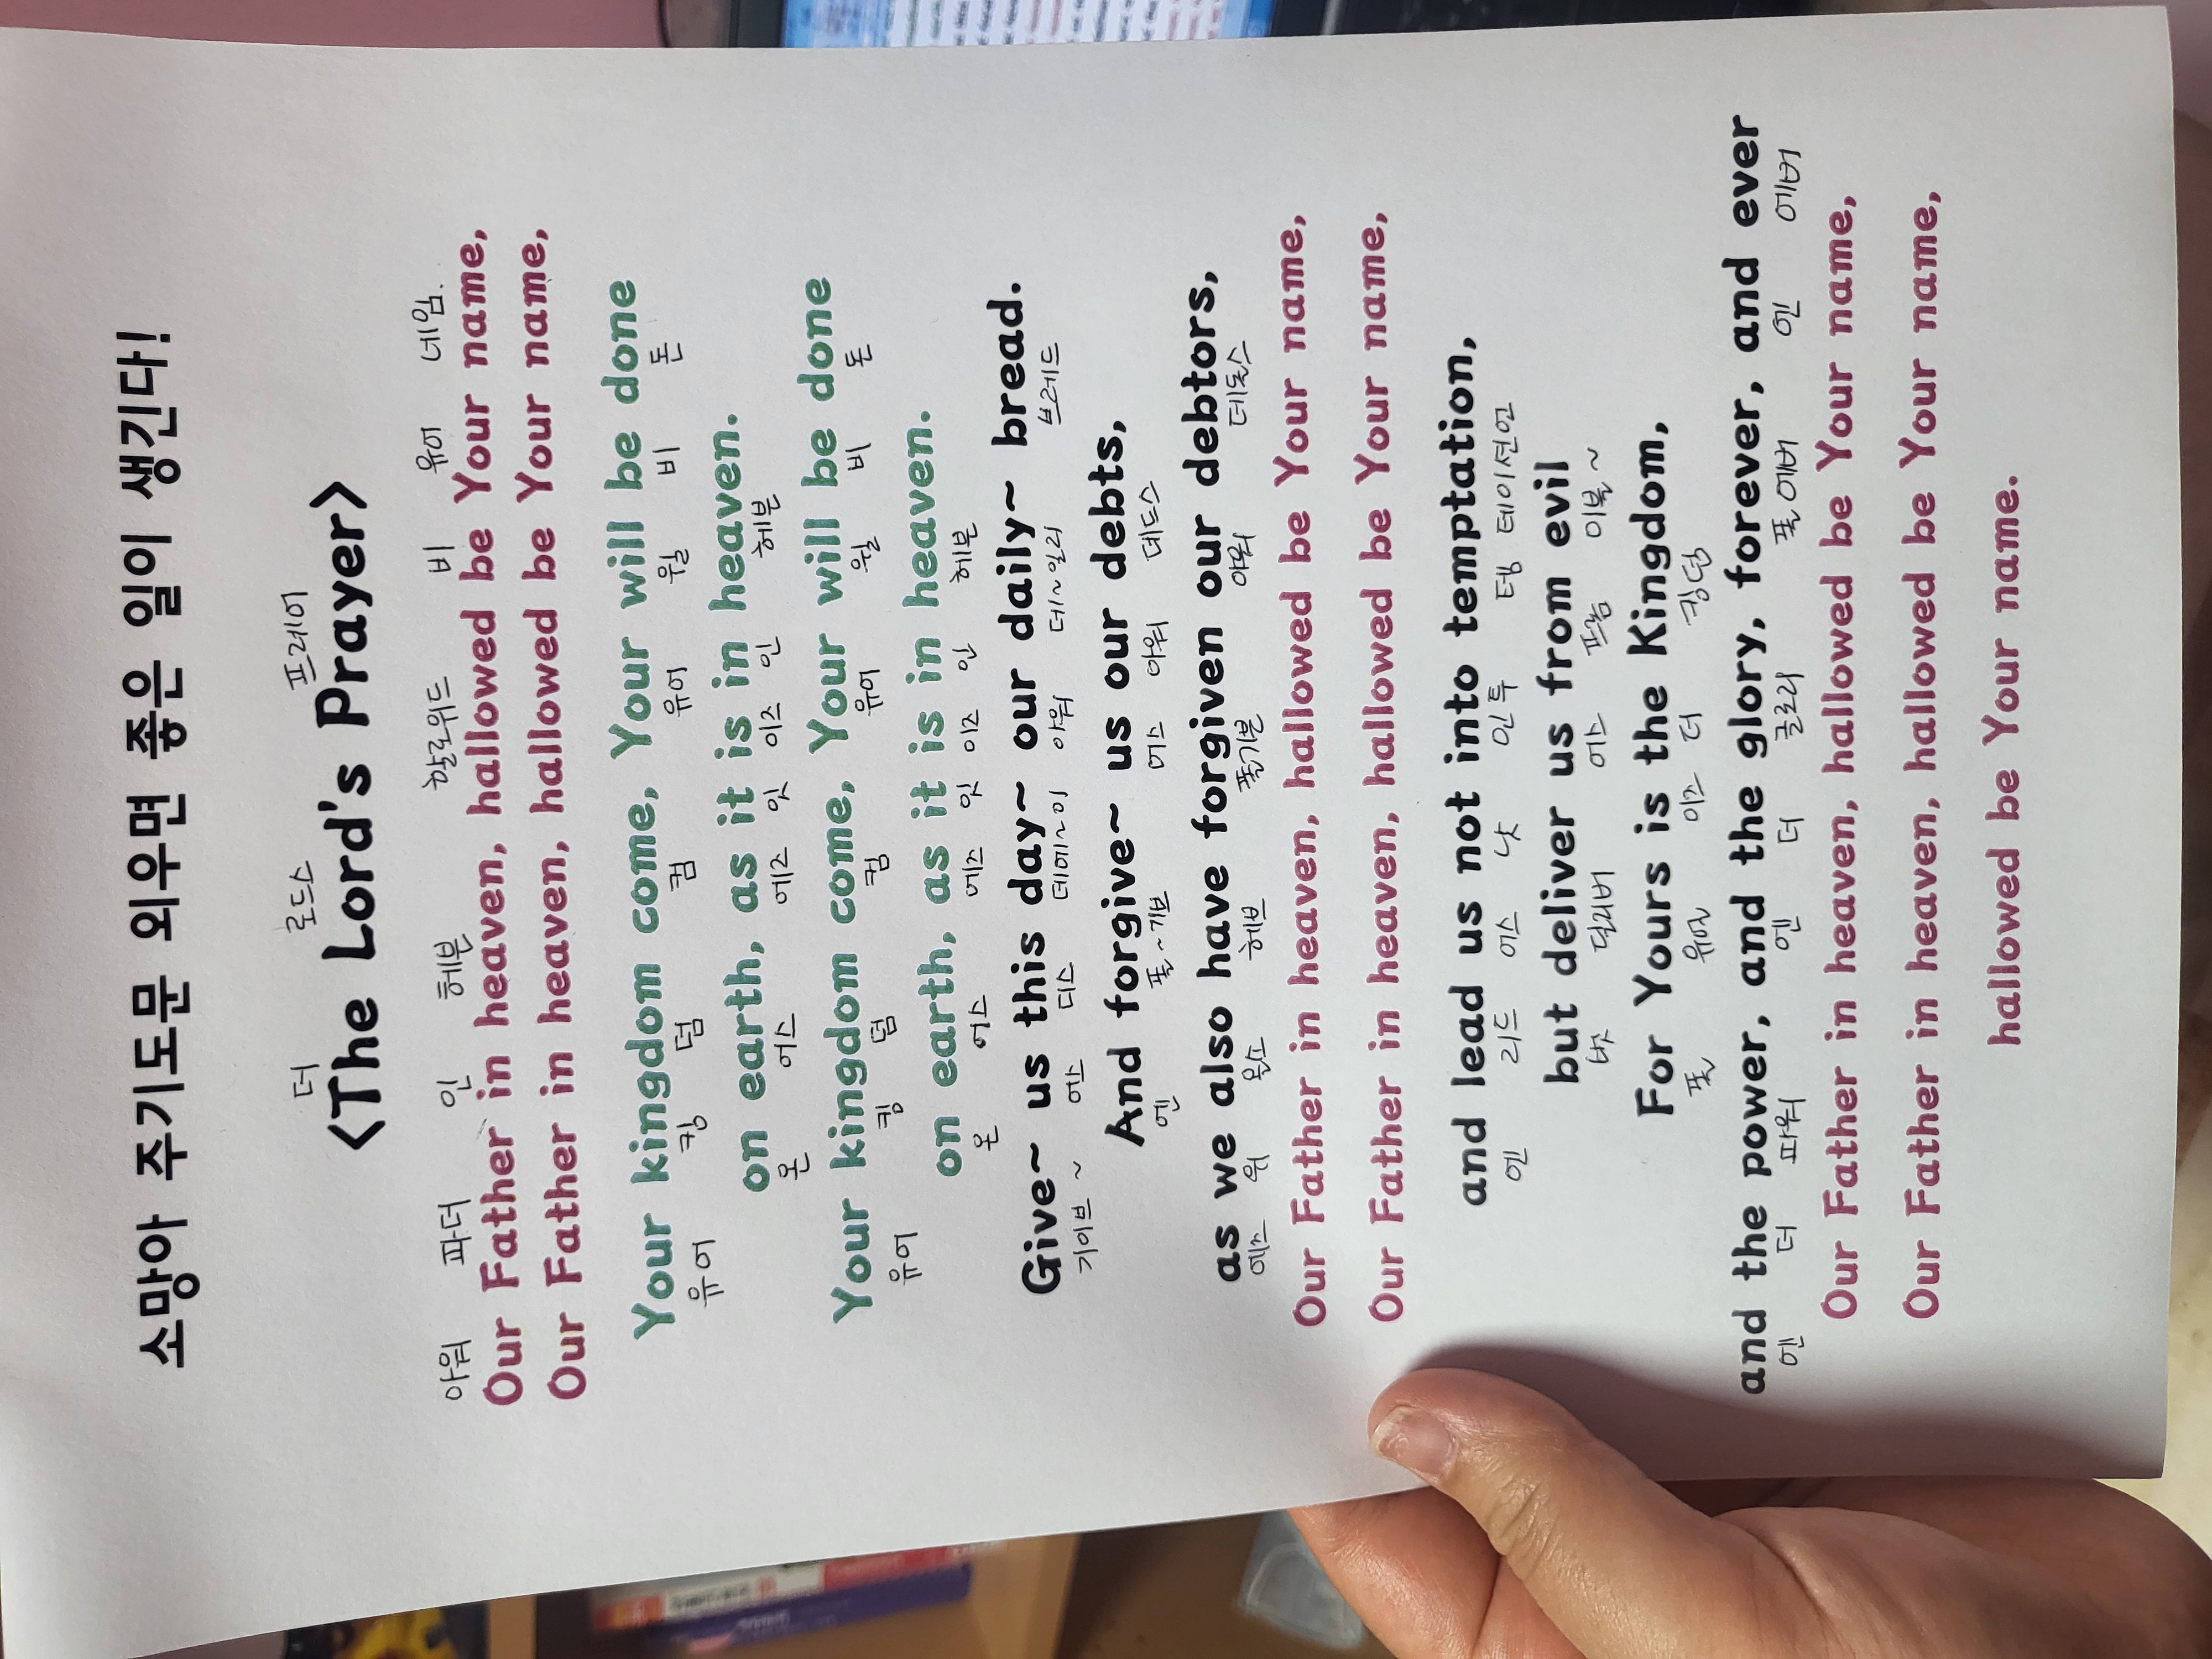 소망아 주기도문 외우면 좋은 일이 생긴다!
더 로드스 프레이어
<The Lord's Prayer>
아워 파더 인 헤븐 할로위드 비 유어 네임.
Our Father in heaven, hallowed be Your name,
Our Father in heaven, hallowed be Your name,
Your kingdom come, Your will be done
유어 킹 덤 컴 유어 윌 비 돈
on earth, as it is in heaven.
온 어스 에즈 잇 이즈 인 헤븐
Your kingdom come, Your will be done
유어 킹 덤 컴 유어 윌 비 돈
on earth, as it is in heaven.
온 어스 에즈 잇 이즈 인 헤븐
Give~ us this day~ our daily~ bread.
기이브~ 어스 디스 데에~이 아워 데~일리 브레드
And forgive~ us our debts,
엔 폴~기브 어스 아워 데드스
as we also have forgiven our debtors,
에즈 위 올소 헤브 폴기븐 아워 데돌스
Our Father in heaven, hallowed be Your name,
Our Father in heaven, hallowed be Your name,
and lead us not into temptation,
엔 리드 어스 낫 인투 템 테이션
but deliver us from evil
벗 딜리버 어스 프롬 이블~
For Yours is the Kingdom,
폴 유얼 이즈 더 킹덤
and the power, and the glory, forever, and ever
엔 더 파워 엔 더 글로리 폴에버 엔 에버
Our Father in heaven, hallowed be Your name,
Our Father in heaven, hallowed be Your name,
hallowed be Your name.